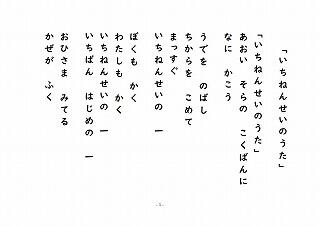 「いちねんせいのうた」
「いちねんせいのうた」
あおい そらの こくばんに
なに かこう
うでを のばし
ちからを こめて
まっすぐ
いちねんせいの 一
ぼくも かく
わたしも かく
いちねんせいの 一
いちばん はじめの 一
おひさま みてる
かぜが ふく